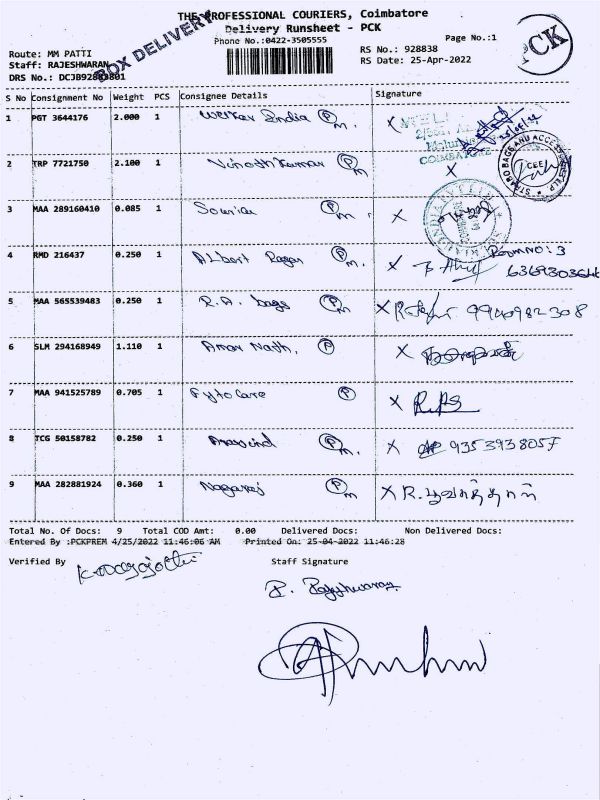 THE PROFESSIONAL COURIERS, Coimbatore
Delivery Runsheet - PCK
Phone No.:0422-3505555
Page No.:1
BOX DELIVERY
PCK
Route: MM PATTI
RS No.: 928838
Staff: RAJESHWARAN
RS Date: 25-Apr-2022
DRS No.: DCJB92883801
S No Consignment No Weight PCS Consignee Details Signature
1 PGT 3644176 2.000 1 India P M. X
COIMBATORE
2 TRP 7721750 2.100 1 Vinoth Kumar P M X
CEE
3 MAA 289160410 0.085 1 P M. X
4 RMD 216437 0.250 1 Albert P M. X Room NO: 3
5 MAA 565539483 0.250 1 R.A. bags P M X 9940982308
6 SLM 294168949 1.110 1 Amar Nath. P X
7 MAA 941525789 0.705 1 Fytocare P X
8 TCG 50158782 0.250 1 Aravind P M. X 9353938057
9 MAA 282881924 0.360 1 Nagaraj P M X R.
Total No. Of Docs: 9 Total COD Amt: 0.00 Delivered Docs: Non Delivered Docs:
Entered By :PCKPREM 4/25/2022 11:46:06 AM Printed On: 25-04-2022 11:46:28
Verified By Staff Signature
P. Rajeshwaran